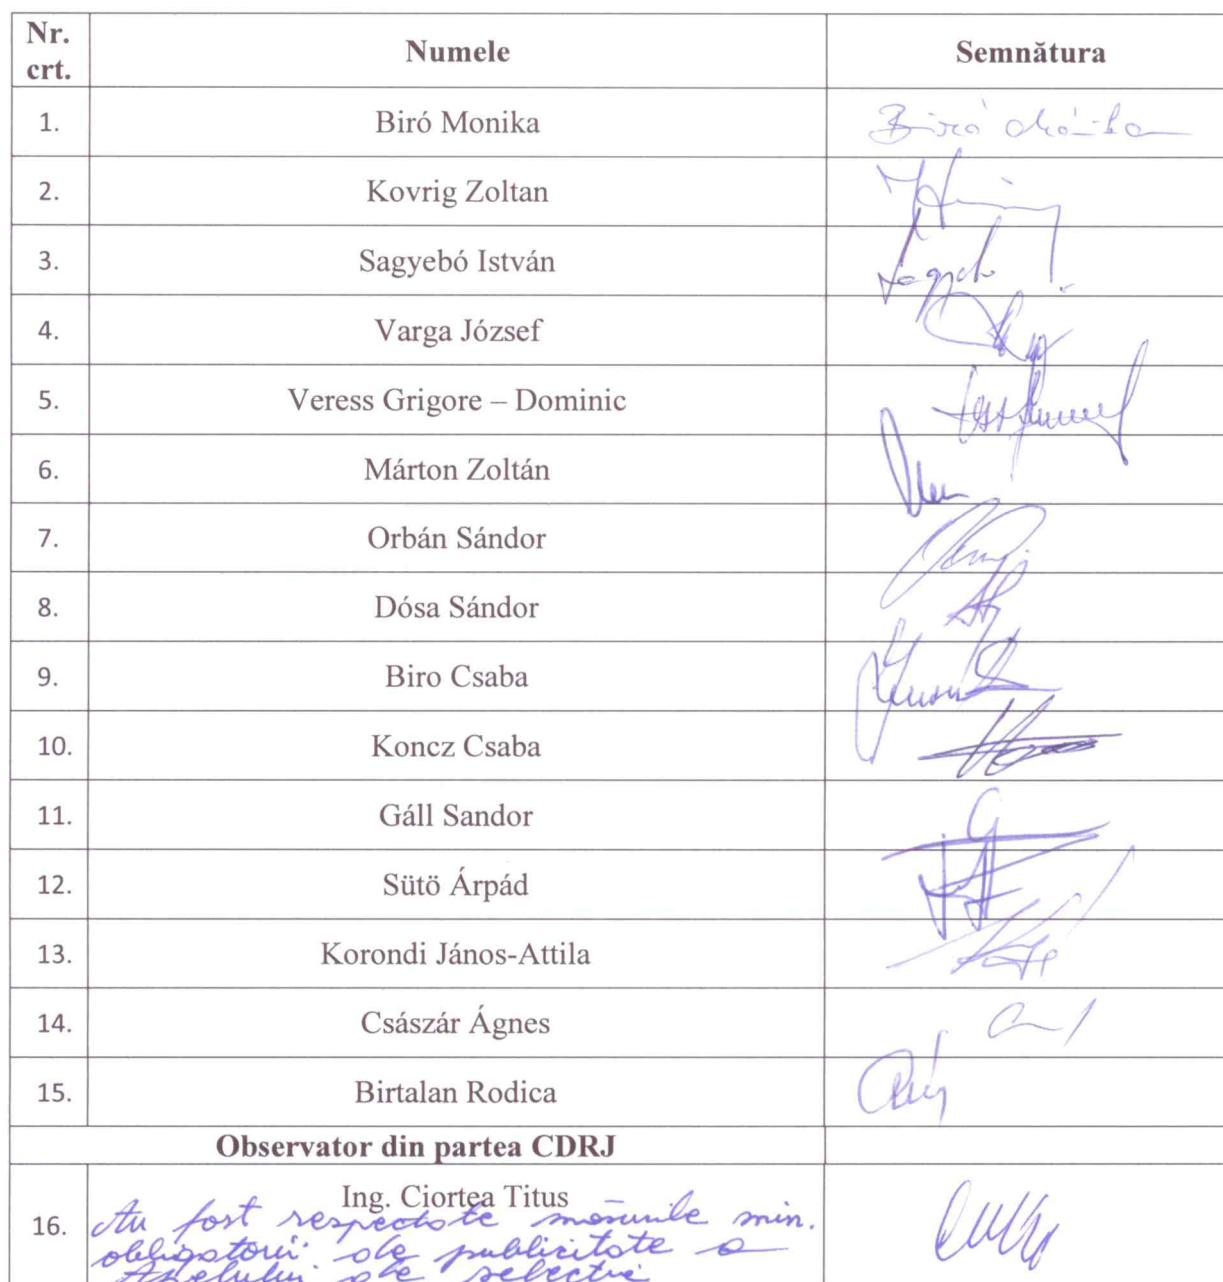 Nr. crt. Numele Semnătura
1. Biró Monika Biró Mónika
2. Kovrig Zoltan
3. Sagyebó István
4. Varga József
5. Veress Grigore – Dominic
6. Márton Zoltán
7. Orbán Sándor
8. Dósa Sándor
9. Biro Csaba
10. Koncz Csaba
11. Gáll Sandor
12. Sütö Árpád
13. Korondi János-Attila
14. Császár Ágnes
15. Birtalan Rodica
Observator din partea CDRJ
16. Ing. Ciortea Titus
Au fost respectate măsurile min.
obligatorii de publicitate a
Apelului de selecție